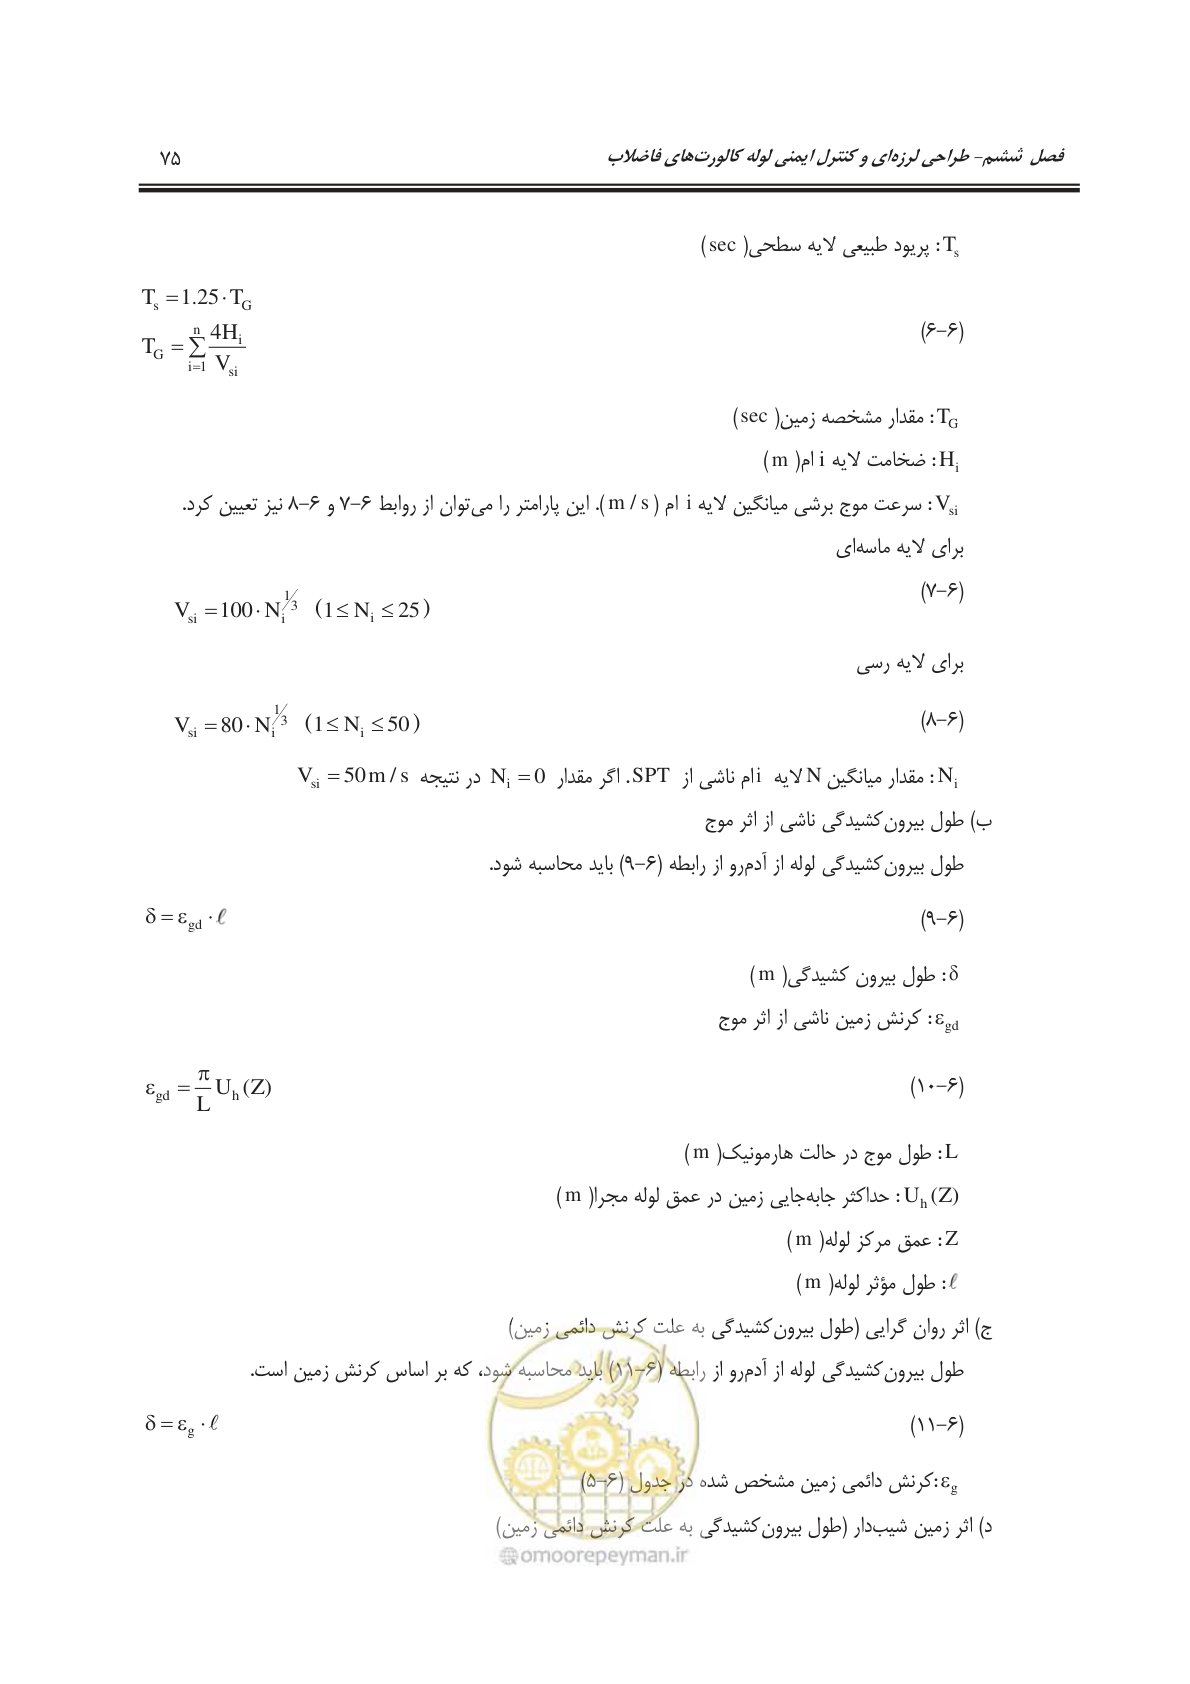 فصل ششم- طراحی لرزه‌ای و کنترل ایمنی لوله کالورت‌های فاضلاب ۷۵
Ts: پریود طبیعی لایه سطحی( sec )
Ts = 1.25 · TG
(۶-۶)
TG = Σ(i=1..n) 4Hi / Vsi
TG: مقدار مشخصه زمین( sec )
Hi: ضخامت لایه i ام( m )
Vsi: سرعت موج برشی میانگین لایه i ام ( m / s ). این پارامتر را می‌توان از روابط ۶-۷ و ۶-۸ نیز تعیین کرد.
برای لایه ماسه‌ای
(۶-۷)
Vsi = 100 · Ni^1/3 (1 ≤ Ni ≤ 25)
برای لایه رسی
(۶-۸) Vsi = 80 · Ni^1/3 (1 ≤ Ni ≤ 50)
Ni: مقدار میانگین N لایه iام ناشی از SPT. اگر مقدار Ni = 0 در نتیجه Vsi = 50 m / s
ب) طول بیرون‌کشیدگی ناشی از اثر موج
طول بیرون‌کشیدگی لوله از آدم‌رو از رابطه (۶-۹) باید محاسبه شود.
(۶-۹) δ = εgd · ℓ
δ: طول بیرون کشیدگی( m )
εgd: کرنش زمین ناشی از اثر موج
(۶-۱۰) εgd = π/L Uh(Z)
L: طول موج در حالت هارمونیک( m )
Uh(Z): حداکثر جابه‌جایی زمین در عمق لوله مجرا( m )
Z: عمق مرکز لوله( m )
ℓ: طول مؤثر لوله( m )
ج) اثر روان گرایی (طول بیرون‌کشیدگی به علت کرنش دائمی زمین)
طول بیرون‌کشیدگی لوله از آدم‌رو از رابطه (۶-۱۱) باید محاسبه شود، که بر اساس کرنش زمین است.
(۶-۱۱) δ = εg · ℓ
εg:کرنش دائمی زمین مشخص شده در جدول (۶-۵)
د) اثر زمین شیب‌دار (طول بیرون‌کشیدگی به علت کرنش دائمی زمین)
امور پیمان
@omoorepeyman.ir